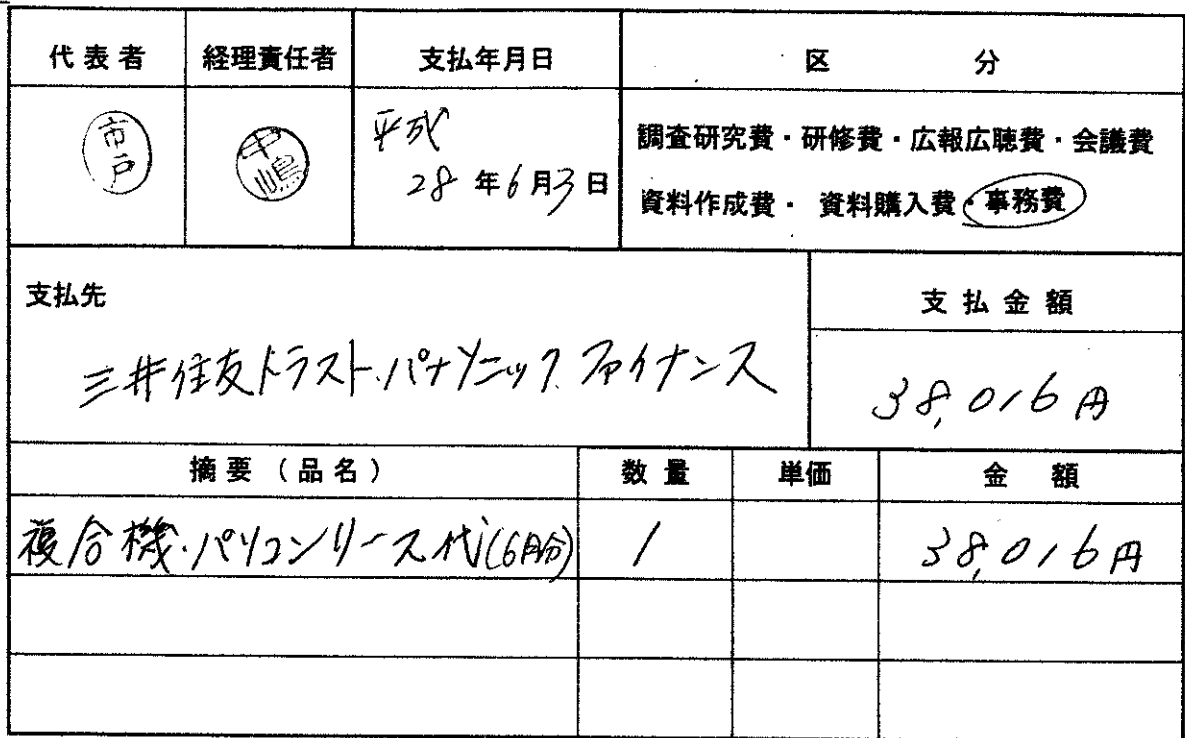 代表者 経理責任者 支払年月日 区 分
市戸 中嶋 平成
28年6月3日
調査研究費・研修費・広報広聴費・会議費
資料作成費・ 資料購入費・事務費
支払先 支払金額
三井住友トラスト・パナソニックファイナンス 38,016円
摘要(品名) 数量 単価 金 額
複合機・パソコンリース代(6月分) 1 38,016円